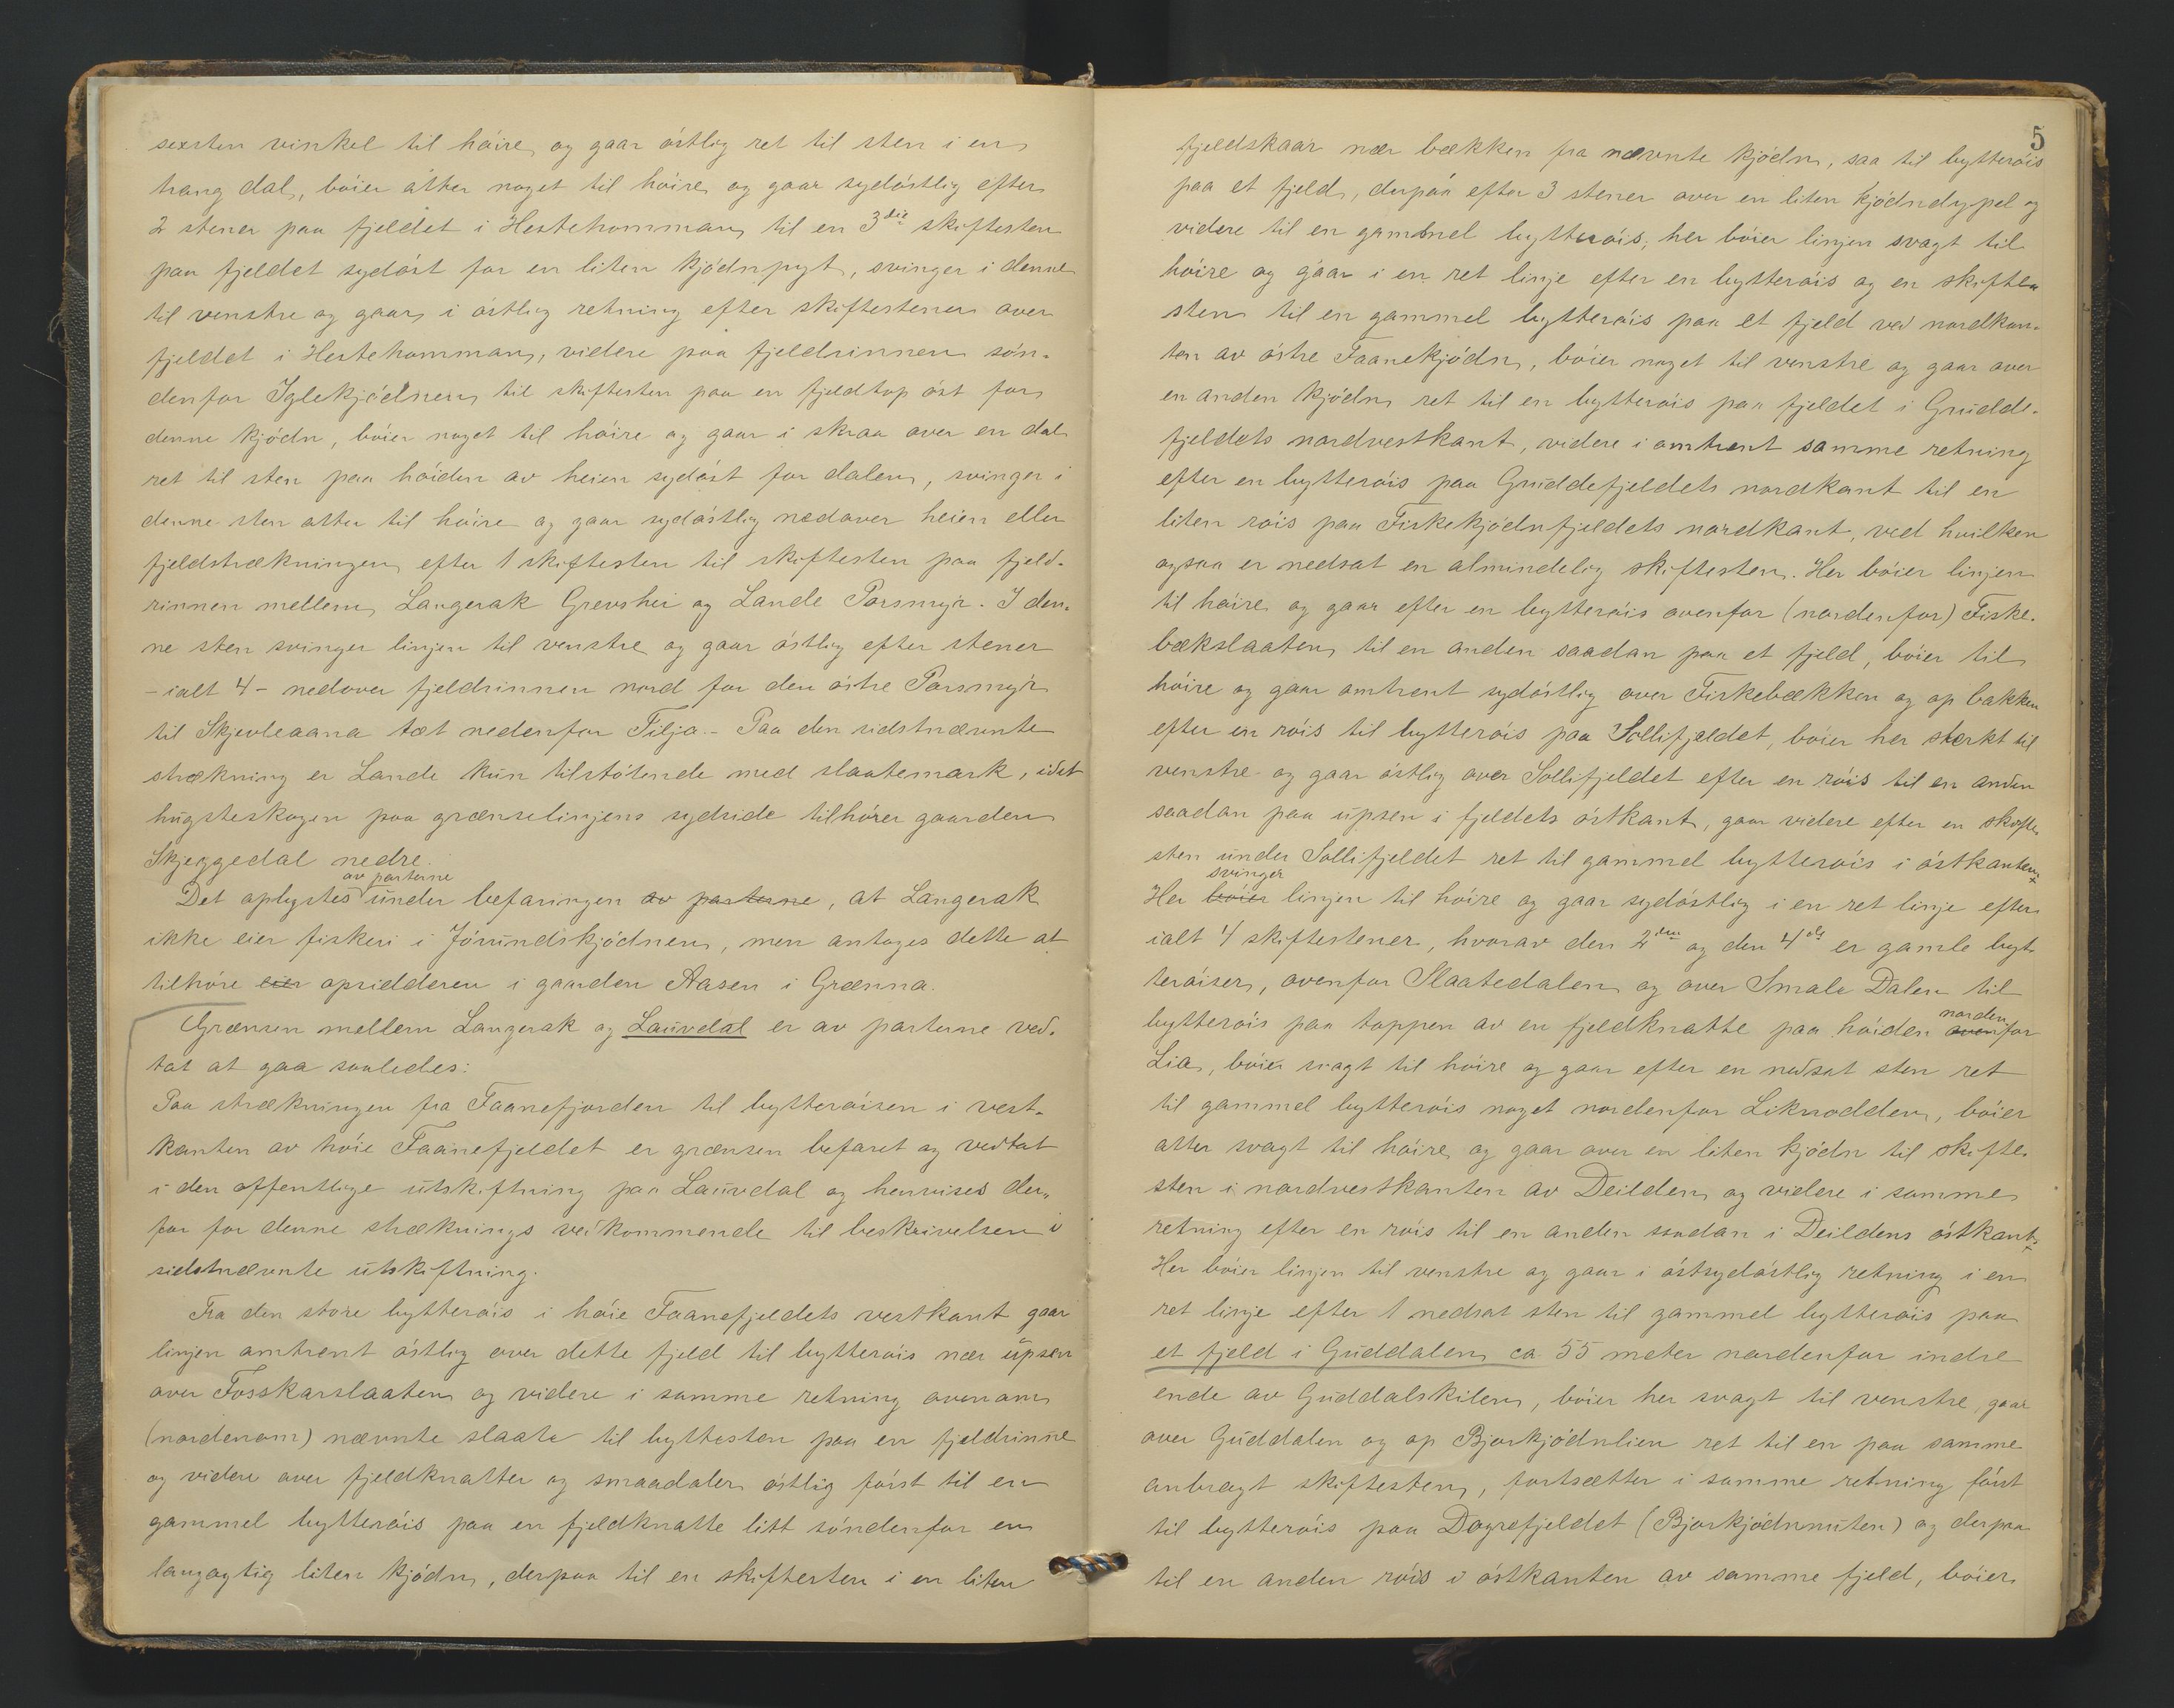 sexten vinkel til höire og gaar östlig ret til sten i en
trang dal, böier atter noget til höire og gaar sydöstlig efter
2 stener paa fjeldet i Hestehomman til en 3die skiftesten
paa fjeldet sydöst for en liten kjödnpyt, svinger i denne
til venstre og gaar i östlig retning efter skiftestener over
fjeldet i Hestehomman, videre paa fjeldrinnen sön-
denfor Iglekjödnen til skiftesten paa en fjeldtop öst for
denne kjödn, böier noget til höire og gaar i skraa over en dal
ret til sten paa höiden av heien sydöst for dalen, svinger i
denne sten atter til höire og gaar sydöstlig nedover heien eller
fjeldstrækningen efter 1 skiftesten til skiftesten paa fjeld-
rinnen mellem Langerak Grevshei og Lande Porsmyr. I den-
ne sten svinger linjen til venstre og gaar östlig efter stener
- ialt 4 - nedover fjeldrinnen nord for den östre Porsmyr
til Skjevleaana tæt nedenfor Tilja.- Paa den sidstnævnte
strækning er Lande kun tilstötende med slaatemark, idet
hugsteskogen paa grænselinjens sydside tilhörer gaarden
Skjeggedal nedre.
av parterne
Det oplystes under befaringen av parterne, at Langerak
ikke eier fiskeri i Jörundskjödnen, men antages dette at
tilhöre eier opsidderen i gaarden Aasen i Grænna.
Grænsen mellem Langerak og Lauvdal er av parterne ved-
tat at gaa saaledes:
Paa strækningen fra Faanefjorden til bytteröisen i vest-
kanten av höie Faanefjeldet er grænsen befaret og vedtat
i den offentlige utskiftning paa Lauvdal og henvises der-
for for denne stræknings vedkommende til beskrivelsen i
sidstnævnte utskiftning.
Fra den store bytteröis i höie Faanefjeldets vestkant gaar
linjen omtrent östlig over dette fjeld til bytteröis nær upsen
over Fosskarslaaten og videre i samme retning ovenom
(nordenom) nævnte slaate til byttesten paa en fjeldrinne
og videre over fjeldknatter og smaadaler östlig först til en
gammel bytteröis paa en fjeldknatte litt söndenfor en
langagtig liten kjödn, derpaa til en skiftesten i en liten
5
fjeldskaar nær bækken fra nævnte kjödn, saa til bytteröis
paa et fjeld, derpaa efter 3 stener over en liten kjödndypel og
videre til en gammel bytteröis; her böier linjen svagt til
höire og gaar i en ret linje efter en bytteröis og en skifte-
sten til en gammel bytteröis paa et fjeld ved nordkan-
ten av östre Faanekjödn, böier noget til venstre og gaar over
en anden kjödn ret til en bytteröis paa fjeldet i Gudde-
fjeldets nordvestkant, videre i omtrent samme retning
efter en bytteröis paa Guddefjeldets nordkant til en
liten röis paa Fiskekjödnfjeldets nordkant, ved hvilken
ogsaa er nedsat en almindelig skiftesten. Her böier linjen
til höire og gaar efter en bytteröis ovenfor (nordenfor) Fiske-
bækslaaten til en anden saadan paa et fjeld, böier til
höire og gaar omtrent sydöstlig over Fiskebækken og op bakken
efter en röis til bytteröis paa Sollifjeldet, böier her sterkt til
venstre og gaar östlig over Sollifjeldet efter en röis til en anden
saadan paa upsen i fjeldets östkant, gaar videre efter en skifte-
sten under Sollifjeldet ret til gammel bytteröis i östkanten.
svinger
Her böier linjen til höire og gaar sydöstlig i en ret linje efter
ialt 4 skiftestener, hvorav den 2den og den 4de er gamle byt-
teröiser, ovenfor Slaatedalen og over Smale Dalen til
norden
bytteröis paa toppen av en fjeldknatte paa höiden ovenfor
Lia, böier svagt til höire og gaar efter en nedsat sten ret
til gammel bytteröis noget nordenfor Liknodden, böier
atter svagt til höire og gaar over en liten kjödn til skifte-
sten i nordvestkanten av Deilden og videre i samme
retning efter en röis til en anden saadan i Deildens östkant.
Her böier linjen til venstre og gaar i östsydöstlig retning i en
ret linje efter 1 nedsat sten til gammel bytteröis paa
et fjeld i Guddalen ca. 55 meter nordenfor indre
ende av Guddalskilen, böier her svagt til venstre, gaar
over Guddalen og op Bjorkjödnlien ret til en paa samme
anbragt skiftesten, fortsætter i samme retning först
til bytteröis paa Dografjeldet (Bjorkjödnnuten) og derpaa
til en anden röis i östkanten av samme fjeld, böier